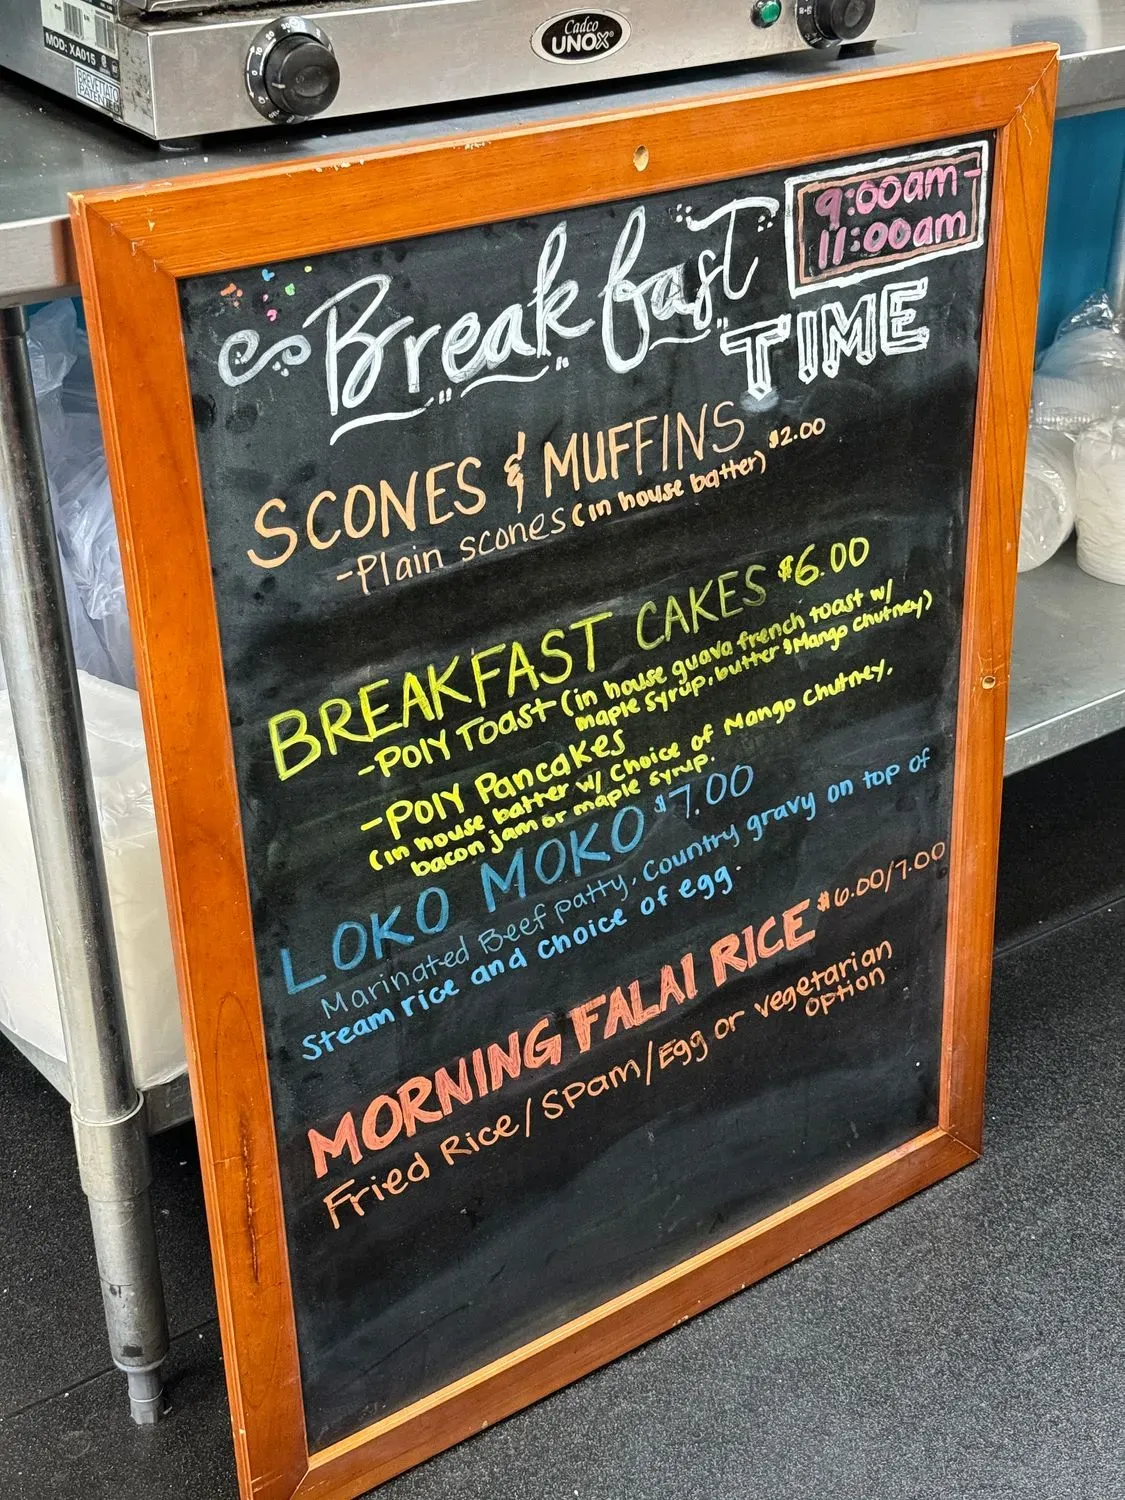 Cadco
UNOX®
MOD: XA015
9:00am -
11:00am
Breakfast
TIME
SCONES & MUFFINS
-Plain scones (in house batter) $2.00
BREAKFAST CAKES $6.00
-Poly Toast (in house guava french toast w/
maple syrup, butter & Mango chutney)
-Poly Pancakes
(in house batter w/ choice of Mango chutney,
bacon jam or maple syrup.
LOKO MOKO $7.00
Marinated Beef patty, Country gravy on top of
Steam rice and choice of egg.
MORNING FALAI RICE $6.00/7.00
Fried Rice/Spam/Egg or vegetarian
option